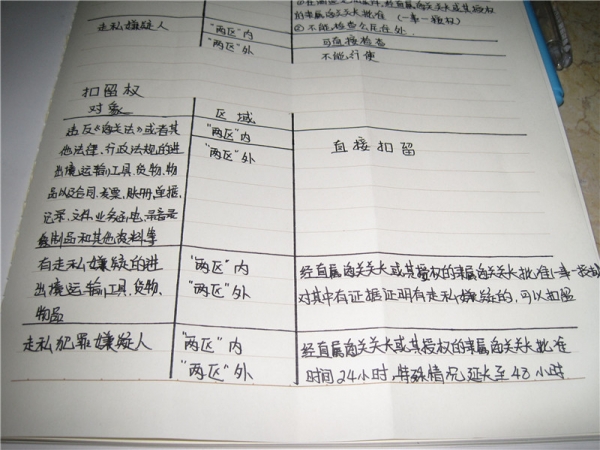 经直属海关关长或其授权
的隶属海关关长批准 (一事一授权)
② 不能检查公民住处
走私嫌疑人 "两区"内 可直接检查
"两区"外 不能行使
扣留权
对象 区域
违反《海关法》或者其 "两区"内
他法律、行政法规的进 "两区"外 直接扣留
出境运输工具、货物、物
品以及合同、发票、账册、单据、
记录、文件、业务函电、录音录
像制品和其他资料等
有走私嫌疑的进 "两区"内 经直属海关关长或其授权的隶属海关关长批准(一事一授权)
出境运输工具、货物、 "两区"外 对其中有证据证明有走私嫌疑的,可以扣留
物品
走私犯罪嫌疑人 "两区"内 经直属海关关长或其授权的隶属海关关长批准
"两区"外 时间24小时,特殊情况延长至48小时